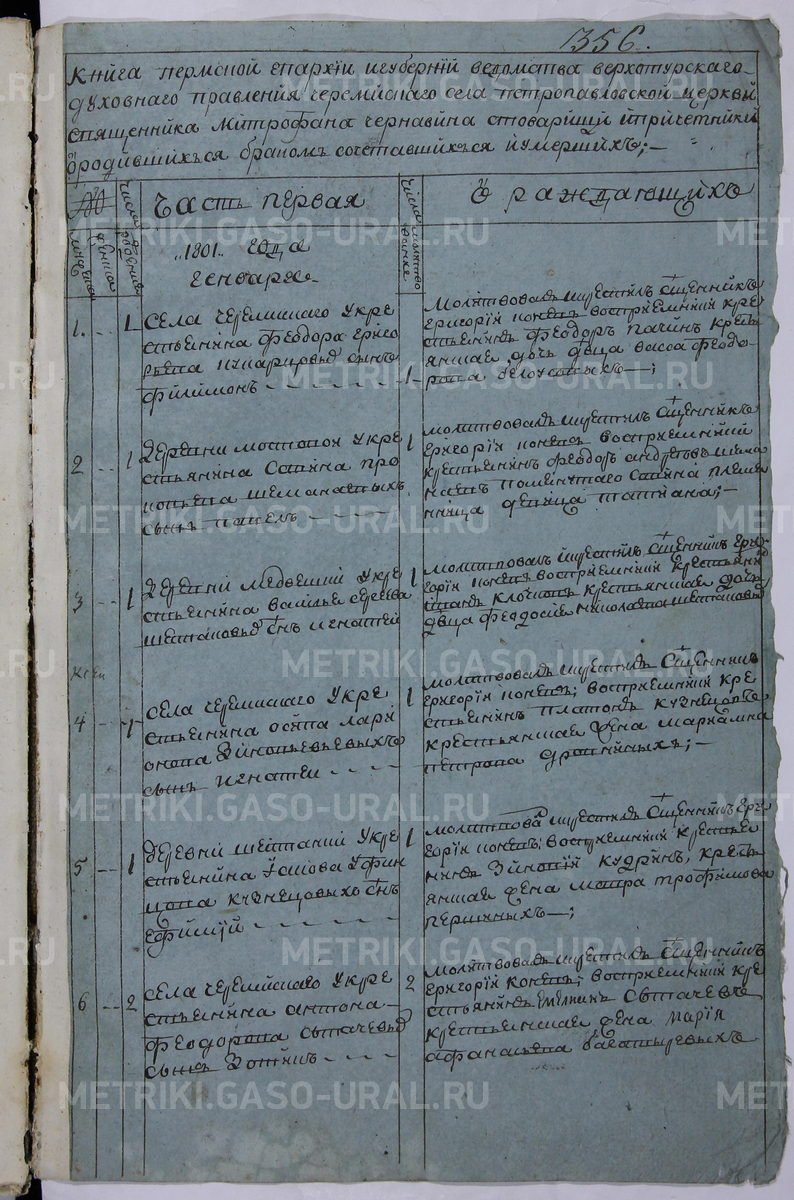 356.
Книга пермской епархїи игубернїи ведомства верхотурскаго
духовнаго правленїя черемискаго села петропавловской церкви
священника Митрофана чернавина стоварищи ипричетники
ородившихъся бракомъ сочетавшихъся иумершихъ;—
Часть первая
О раждающихъ
1801 года
генваря
1. 1
села черемискаго укре
стьянина феодора григо
рьева
сынъ
филимонъ
1
молитвовалъ икрестилъ священникъ
григорїи коневъ восприемники кре
стьянинъ феодоръ пачинъ кресть
янская дочь дѣвца васса феодо
рова белоусовыхъ—;
2 1
деревни мостовои укре
стьянина
про
копьева шеманаевыхъ
сынъ павелъ
1
молитвовалъ икрестилъ священникъ
григорїи коневъ восприемники
крестьянинъ феодоръ андреевъ шема
наевъ
племя
нница девица татиана;—
3 1
деревни медвешки укре
стьянина василья сергеева
шестаковыхъ снъ игнатеи
1
молитвовалъ икрестилъ священникъ гри
горїи коневъ восприемники крестьяни
крестьянская дочь
двца феодосия николаева шестаковы
4 1
села черемискаго укре
стьянина осипа лари
онова зиновьевыхъ
сынъ игнатеи
1
молитвовалъ икрестилъ священникъ
григорїи коневъ; восприемники кре
стьянинъ платонъ кузнецовъ
крестьянская жена мариамна
петрова дронниныхъ;—
5 1
деревни шейтанки укре
стьянина
кузнецовыхъ снъ
ефимїй
1
молитвовалъ икрестилъ священникъ гри
горїи коневъ; восприемники крестья
нинъ зиновїй кудринъ, кресть
янская жена мотра трофимова
першиныхъ—;
6 2
села черемискаго укре
стьянина антона
феодорова сытачевыхъ
сынъ зотикъ
2
молитвовалъ икрестилъ священникъ
григорїи коневъ; восприемники кре
стьянинъ емелианъ сытачевъ
крестьянская жена марїя
афанасьева багатыревыхъ
METRIKI.GASO-URAL.RU